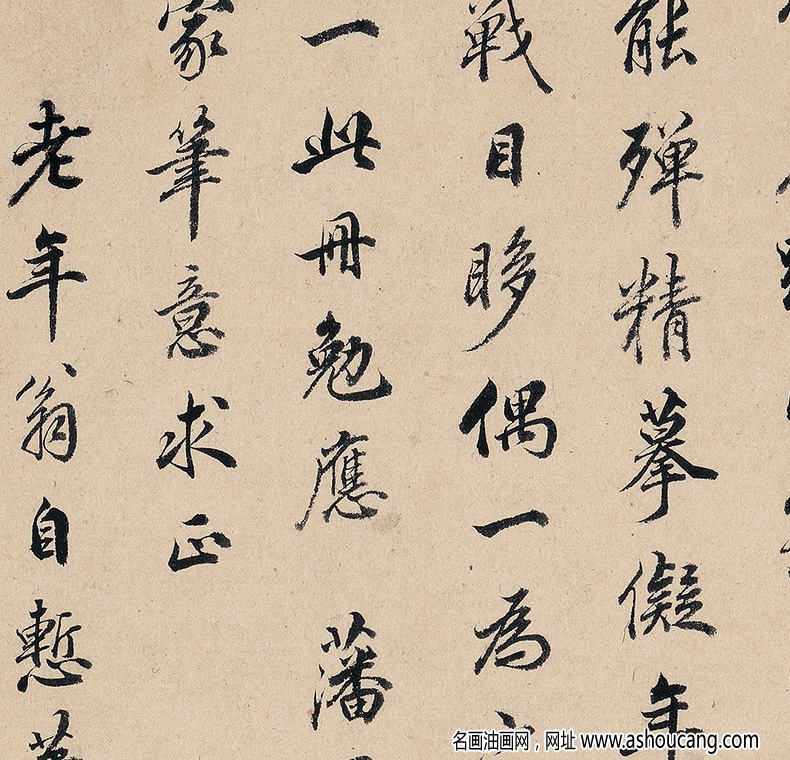 能殫精摹儗年
戰目眵偶一為
一此冊勉應藩
家筆意求正
老年翁自慙
名画油画网，网址 www.ashoucang.com